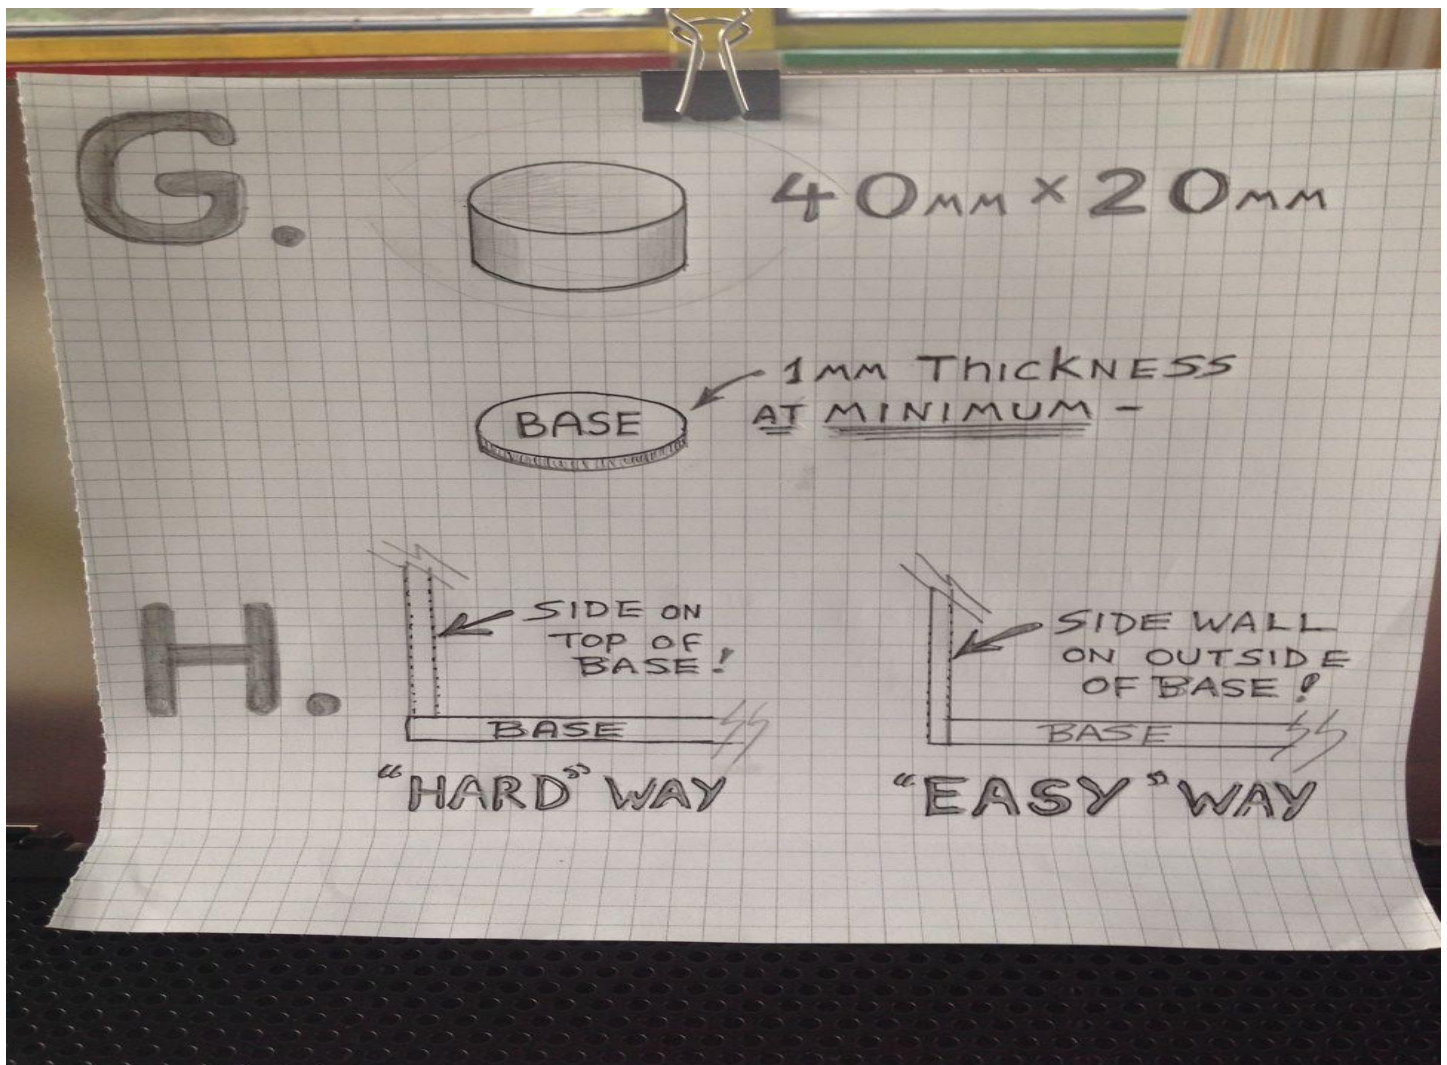 G.
40mm × 20mm
1mm ThickNESS
AT MINIMUM -
BASE
H.
SIDE ON
TOP OF
BASE!
BASE
"HARD" WAY
SIDE WALL
ON OUTSIDE
OF BASE!
BASE
"EASY" WAY